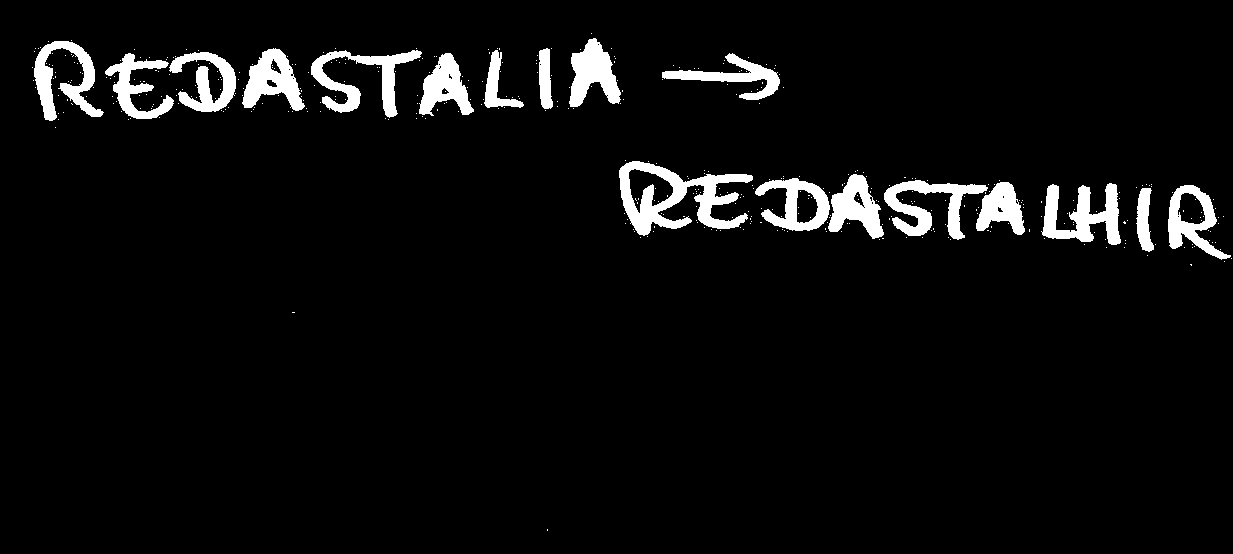 REDASTALIA →
REDASTALHIR